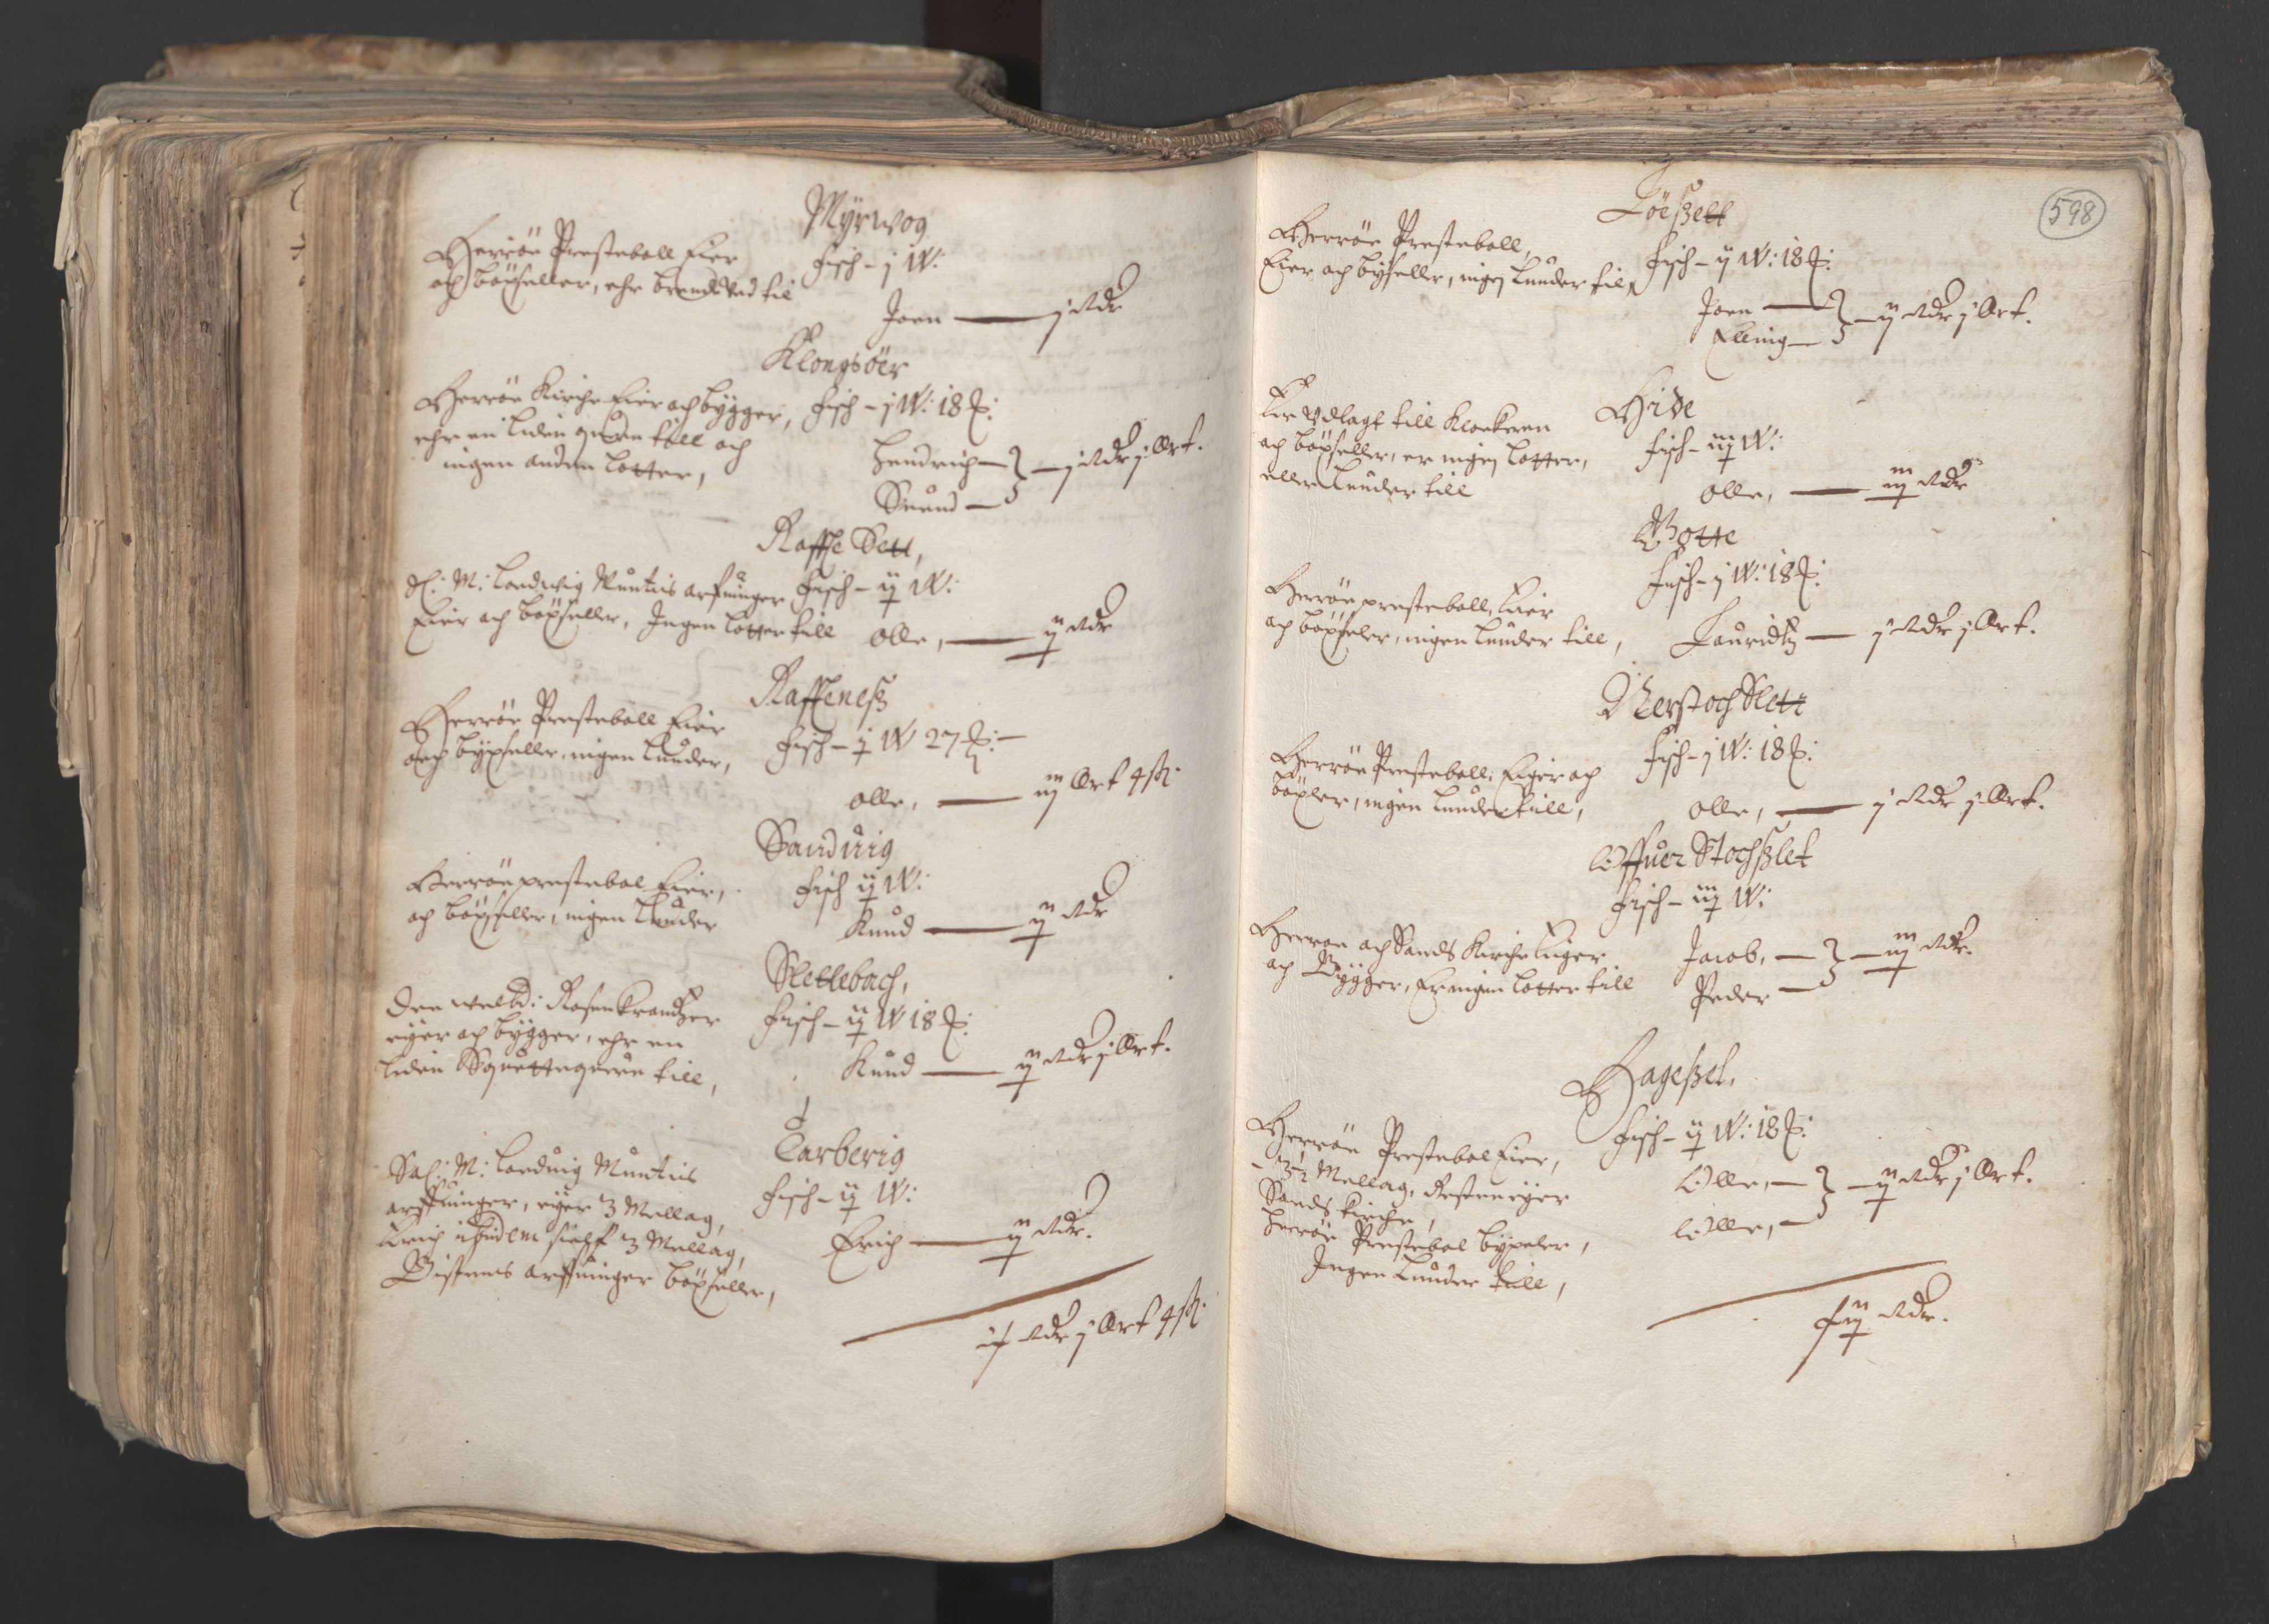 Myrwog
Herröe Presteboll Eier
och böxseller, ehr brendeVed til
Fisch - j W:
Joen — j Rdr
Klongsöer
Herröe Kirche Eier och bygger,
ehr en liden quern till och
ingen anden lotter,
Fisch - j W: 18 ℔:
Hendrich
Suend — j Rdr j Ort.
Raffle Sett,
Sl: M: Lordwig Muntis arfuinger
Eier och böxseller, Ingen lotter till
Fisch - ij W:
Olle, — ij Rdr
Raffeneß
Herröe Presteboll Eier
och byxseller, ingen Lunder,
Fisch - j W 27 ℔:
Olle, — iij Ort 4 ß:
Sanduiig
Herröe prestebol Eier,
och böxseller, ingen Lunder
Fisch ij W:
Knud — ij Rdr
Slettebach,
Den welbd: Rosenkrandzer
eyer och bygger, ehr en
liden Squettequern till,
Fisch - ij W 18 ℔:
Knud — ij Rdr j Ort.
Tarberig
Sal: M: Lorduig Muntis
arffuinger, eyer 3 Mellag,
Erich ibidem sielff 3 Mellag,
arffuinger böxseller,
Fisch - ij W:
Erich — ij Rdr.
Rdr j Ort 4 ß:
598
Löeßett
Herröe Presteboll,
Eier och byseller, ingen Lunder till,
Fisch - ij W: 18 ℔:
Joen
Elling — ij Rdr j Ort.
Hide
Er Vdlagt till Klockeren
och böxseller, er ingen lotter,
eller Lunder till
Fisch - iij W:
Olle, — iij Rdr
Botte
Herröe presteboll, Eier
och böxseler, ingen Lunder till,
Fisch - j W: 18 ℔:
Lauridtz — j Rdr j Ort.
Nerstochslett
Herröe Presteboll, Eyer och
böxler, ingen Lunder till,
Fisch - j W: 18 ℔:
Olle, — j Rdr j Ort.
Offuer Stochßlet
Herröe och Sands Kirche Eiger
och Bygger, Er ingen lotter till
Fisch - iij W:
Jacob,
Peder — iij Rdr.
Hageßel,
Herröe Prestebol Eier,
Mellag, Resten eyer
Sands Kirche,
Herröe Prestebol byxeler,
Ingen Lunder till,
Fisch - ij W: 18 ℔:
Olle,
Olle, — ij Rdr j Ort.
Rdr.